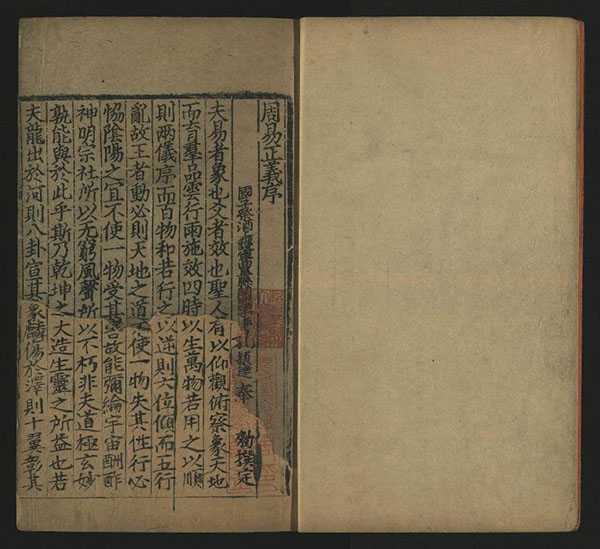 周易正義序
國子祭酒上護軍曲阜縣開國子 孔穎達奉 勑撰定
夫易者象也爻者效也聖人有以仰觀俯察象天地
而育羣品雲行雨施效四時以生萬物若用之以順
則兩儀序而百物和若行之以逆則六位傾而五行
亂故王者動必則天地之道不使一物失其性行必
恊陰陽之宜不使一物受其害故能彌綸宇宙酬酢
神明宗社所以无窮風聲所以不朽非夫道極玄妙
孰能與於此乎斯乃乾坤之大造生靈之所益也若
夫龍出於河則八卦宣其象麟傷於澤則十翼彰其